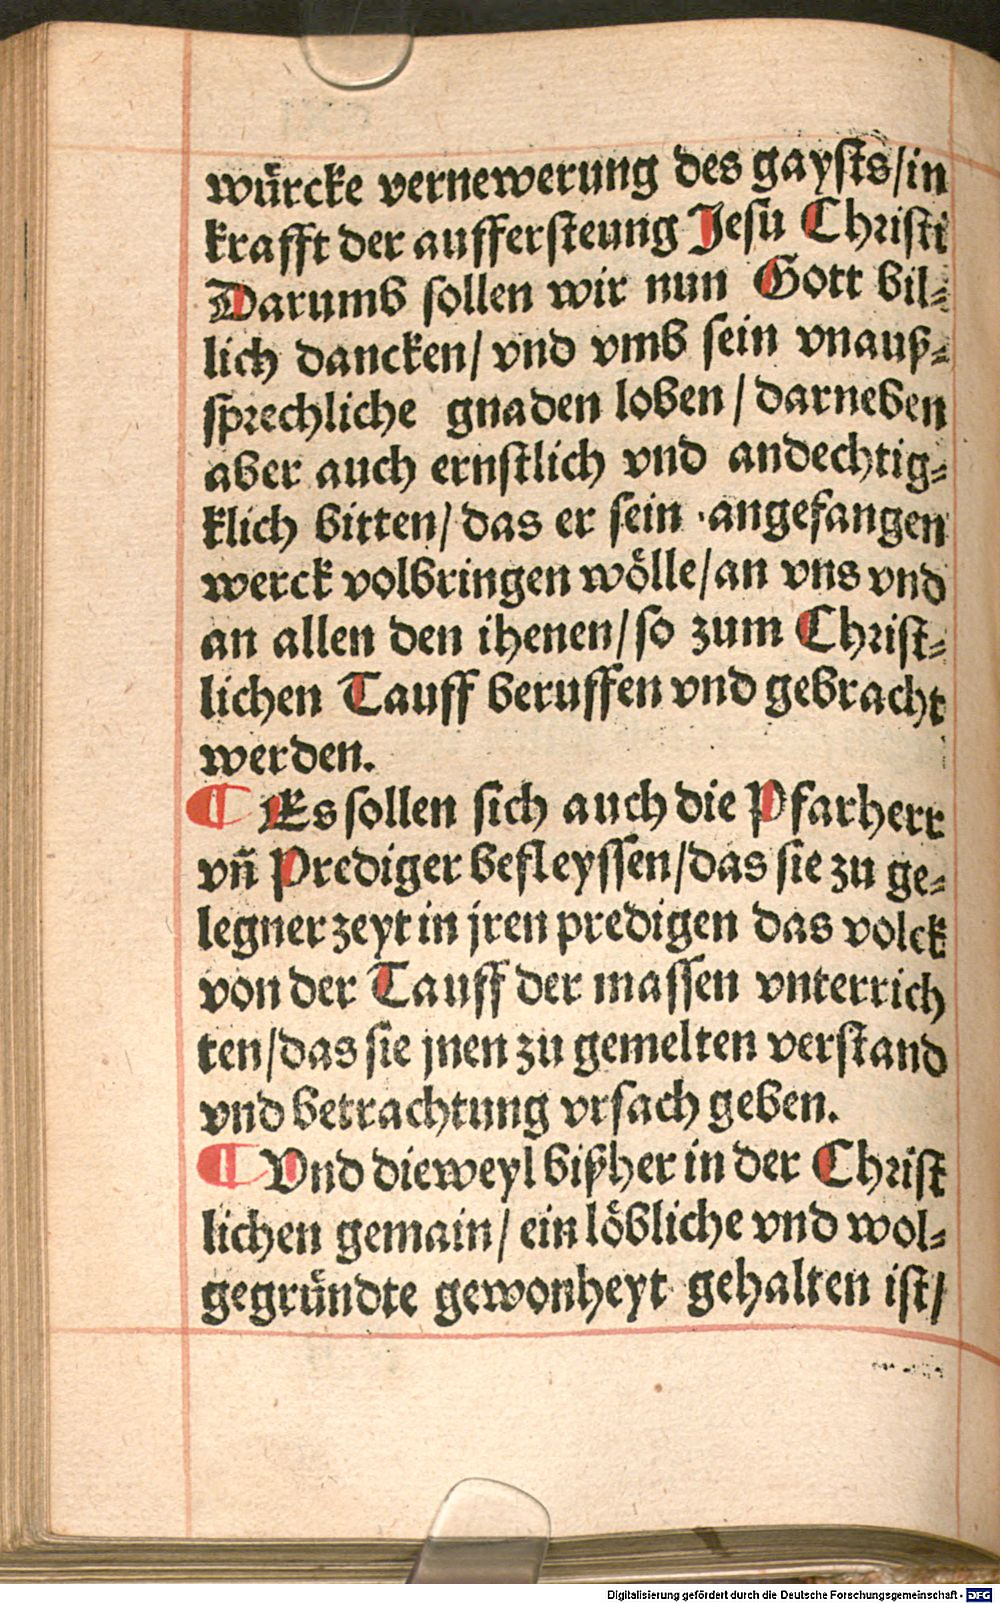 wuͤrcke vernewerung des gaysts/in
krafft der aufferſteung Jeſu Chriſti
Darumb ſollen wir nun Gott bil⸗
lich dancken/ vnd vmb ſein vnauß⸗
ſprechliche gnaden loben / darneben
aber auch ernſtlich vnd andechtig⸗
klich bitten/ das er ſein angefangen
werck volbringen woͤlle/an vns vnd
an allen den ihenen/ ſo zum Chriſt⸗
lichen Tauff beruffen vnd gebracht
werden.
¶ Es ſollen ſich auch die Pfarherr
vñ Prediger befleyſſen/das ſie zu ge⸗
legner zeyt in jren predigen das volck
von der Tauff der maſſen vnterrich
ten/das ſie jnen zu gemelten verſtand
vnd betrachtung vrſach geben.
¶ Vnd dieweyl bißher in der Chriſt
lichen gemain/ ein loͤbliche vnd wol⸗
gegruͤndte gewonheyt gehalten iſt/
Digitalisierung gefördert durch die Deutsche Forschungsgemeinschaft - DFG